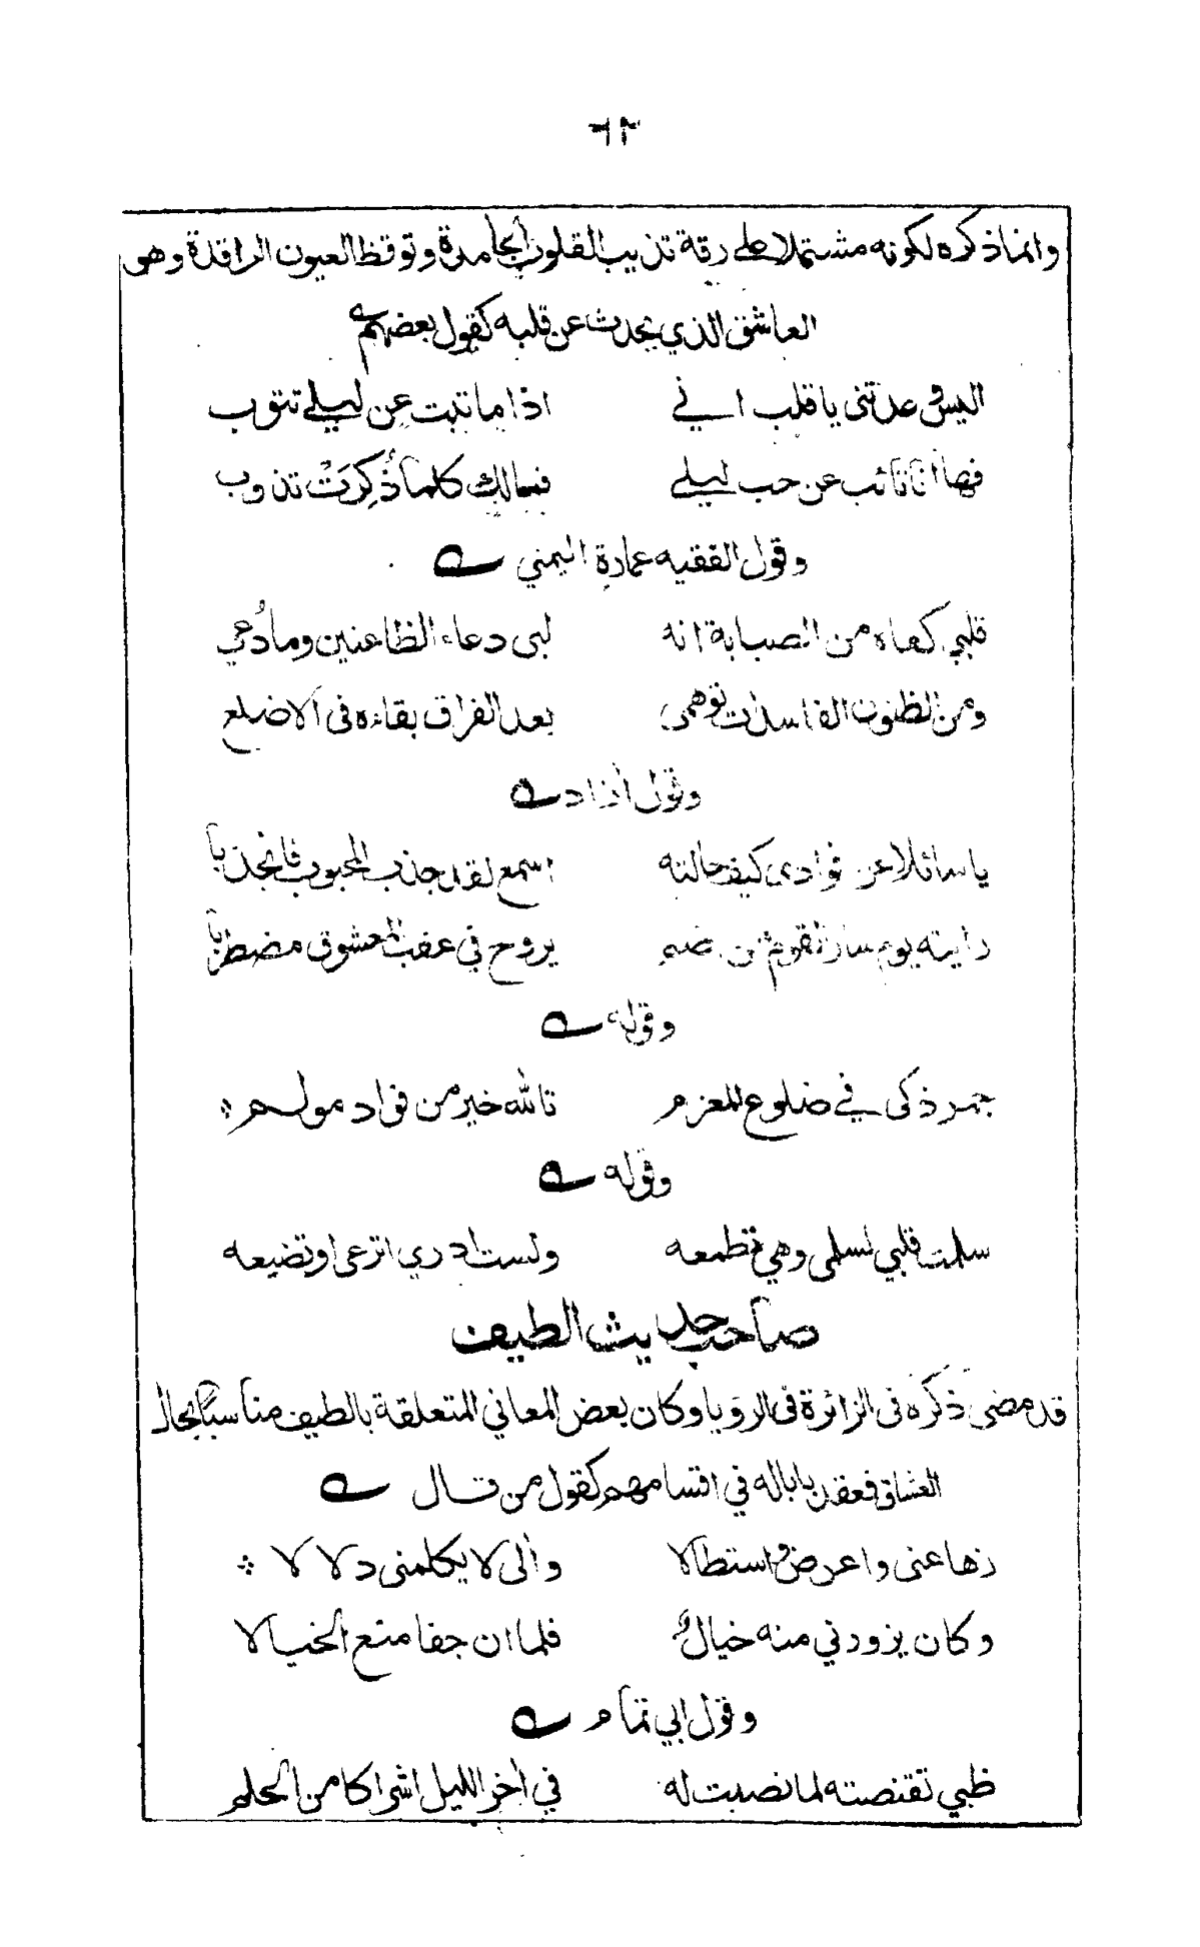 ٦٣
وانما ذكره لكونه مشتملا على رقة تذيب القلوب الجامدة وتوقظ العيون الراقدة وهى
العاشق الذي يحدث عن قلبه كقول بعضهم
اليس وعدتنى يا قلب اني اذا ما تبت عن ليلى تتوب
فها انا تائب عن حب ليلى فمالك كلما ذُكِرَتْ تذوب
وقول الفقيه عمارة اليمني
قلبي كفاه من الصبابة انه لبى دعاء الظاعنين وما دُعي
ومن الظنون الفاسدات توهمى بعد الفراق بقاءه فى الاضلع
وقول آزاد
يا سائلا عن فوادى كيف حالته اسمع لقد جذب المحبوب فانجذبا
رايته يوم سار القوم من يروح في عقب المعشوق مضطربا
وقوله
جمر ذكى في ضلوع المغرم تالله خير من فواد مولم
وقوله
سلمت قلبي لسلمى وهي تطمعه ولست ادري اترعى او تضيعه
صاحب حديث الطيف
قد مضى ذكره فى الزائرة فى الرويا وكان بعض المعاني المتعلقة بالطيف مناسبا بحال
العشاق فعقدت بابا له في اقسامهم كقول من قال
زها عنى واعرض واستطالا والى لا يكلمنى دلالا
وكان يزورني منه خيال فلما ان جفا منع الخيالا
وقول ابي تمام
ظبي تقنصته لما نصبت له في اخر الليل اشراكا من الحلم